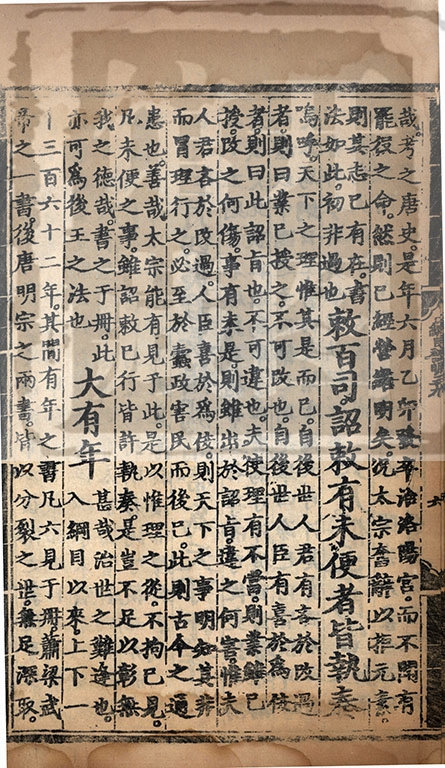 哉。考之唐史。是年六月乙卯發卒治洛陽宮。而不聞有
罷役之命。然則已經營露明矣。況太宗奮辭以拒元素。
則其志已有在。書
法如此。初非過也
敕百司。詔敕有未便者皆執奏
嗚呼。天下之理惟其是而已。自後世人君有吝於改過
者。則曰業已授之。不可改也。自後世人臣有喜於為佞
者。則曰此詔旨也。不可違也。夫使理有不當。則業雖已
授。改之何傷。事有未是。則雖出於詔旨。違之何害。惟夫
人君吝於改過。人臣喜於為佞。則天下之事明知其非
而冒理行之。必至於蠹政害民而後已。此則古今之通
患也。善哉太宗能有見于此。是以惟理之從。不拘已見。
凡未便之事。雖詔敕已行。皆許執奏。是豈不足以彰無
我之德哉。書之于冊。此
亦可為後王之法也
大有年
甚哉治世之難逢也。
入綱目以來。上下一
十三百六十二年。其間有年之書凡六見于冊。蕭梁武
帝之一書。後唐明宗之兩書。皆以分裂之世。無足深取。